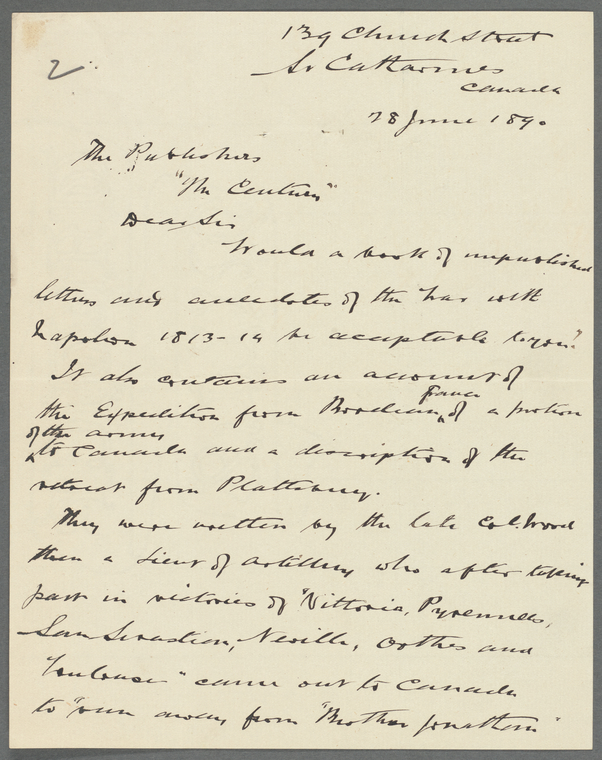 2
139 Church Street
St Catharines
Canada
28 June 1890
The Publishers
"The Century"
Dear Sir
Would a book of unpublished
letters and anecdotes of the War with
Napoleon 1813-14 be acceptable to you?
It also contains an account of
the Expedition from Bordeaux, France of a portion
of the army
to Canada and a discription of the
retreat from Plattsburg.
They were written by the late Col. Wood
then a Lieut of Artillery who after taking
part in victories of "Vittoria, Pyrennees,
San Sevastian, Neville, Orthes and
Toulouse" came out to Canada
to "run away from "Brother Jonathan"